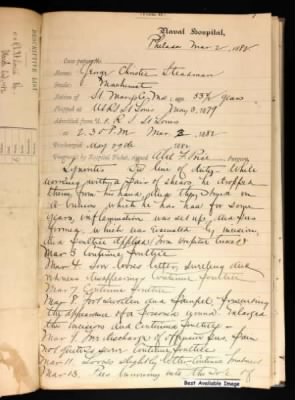 Naval Hospital,
Philada Mar 2, 1882
Case paper of
Name: George Christie Steadman
Machinist
Native of St Mary's, Md; age 33 years
Shipped at U.S.R.S St Louis May 3, 1879
Admitted from U.S.R.S. St Louis
at 2.30 P.M. Mar 2, 1882
Discharged May 29th 1882
Diagnosis by Hospital Ticket, signed Abel F. Price Surgeon
In line of duty. While
working with a pair of shears he dropped
them from his hand and they struck on
a bunion which he has had for some
years, inflammation was set up, and pus
formed, which was evacuated by incision,
and poultice applied
Mar 3 Continue poultice
Mar 4. looks better, swelling and
disappearing Continue poultice
Mar 7 Continue poultice
Mar 8 Foot swollen and painful, presenting
the appearance of a wound enlarged
the incision and continued poultice
Mar 9 discharge of offensive pus from
continue poultice
Mar 11. Looks slightly better
Mar 13. Pus burrowing into the sole of
DESCRIPTIVE LIST
Best Available Image